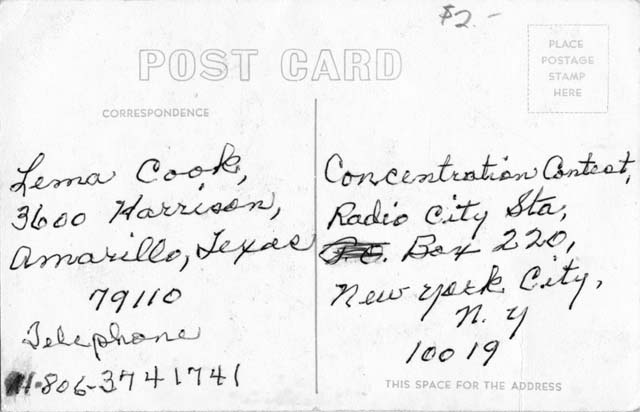 $2.-
PLACE
POSTAGE
STAMP
HERE
POST CARD
CORRESPONDENCE
Lema Cook,
3600 Harrison,
Amarillo, Texas
79110
Telephone
806-3741741
Concentration Contest,
Radio City Sta,
Box 220,
New York City,
N. Y
10019
THIS SPACE FOR THE ADDRESS